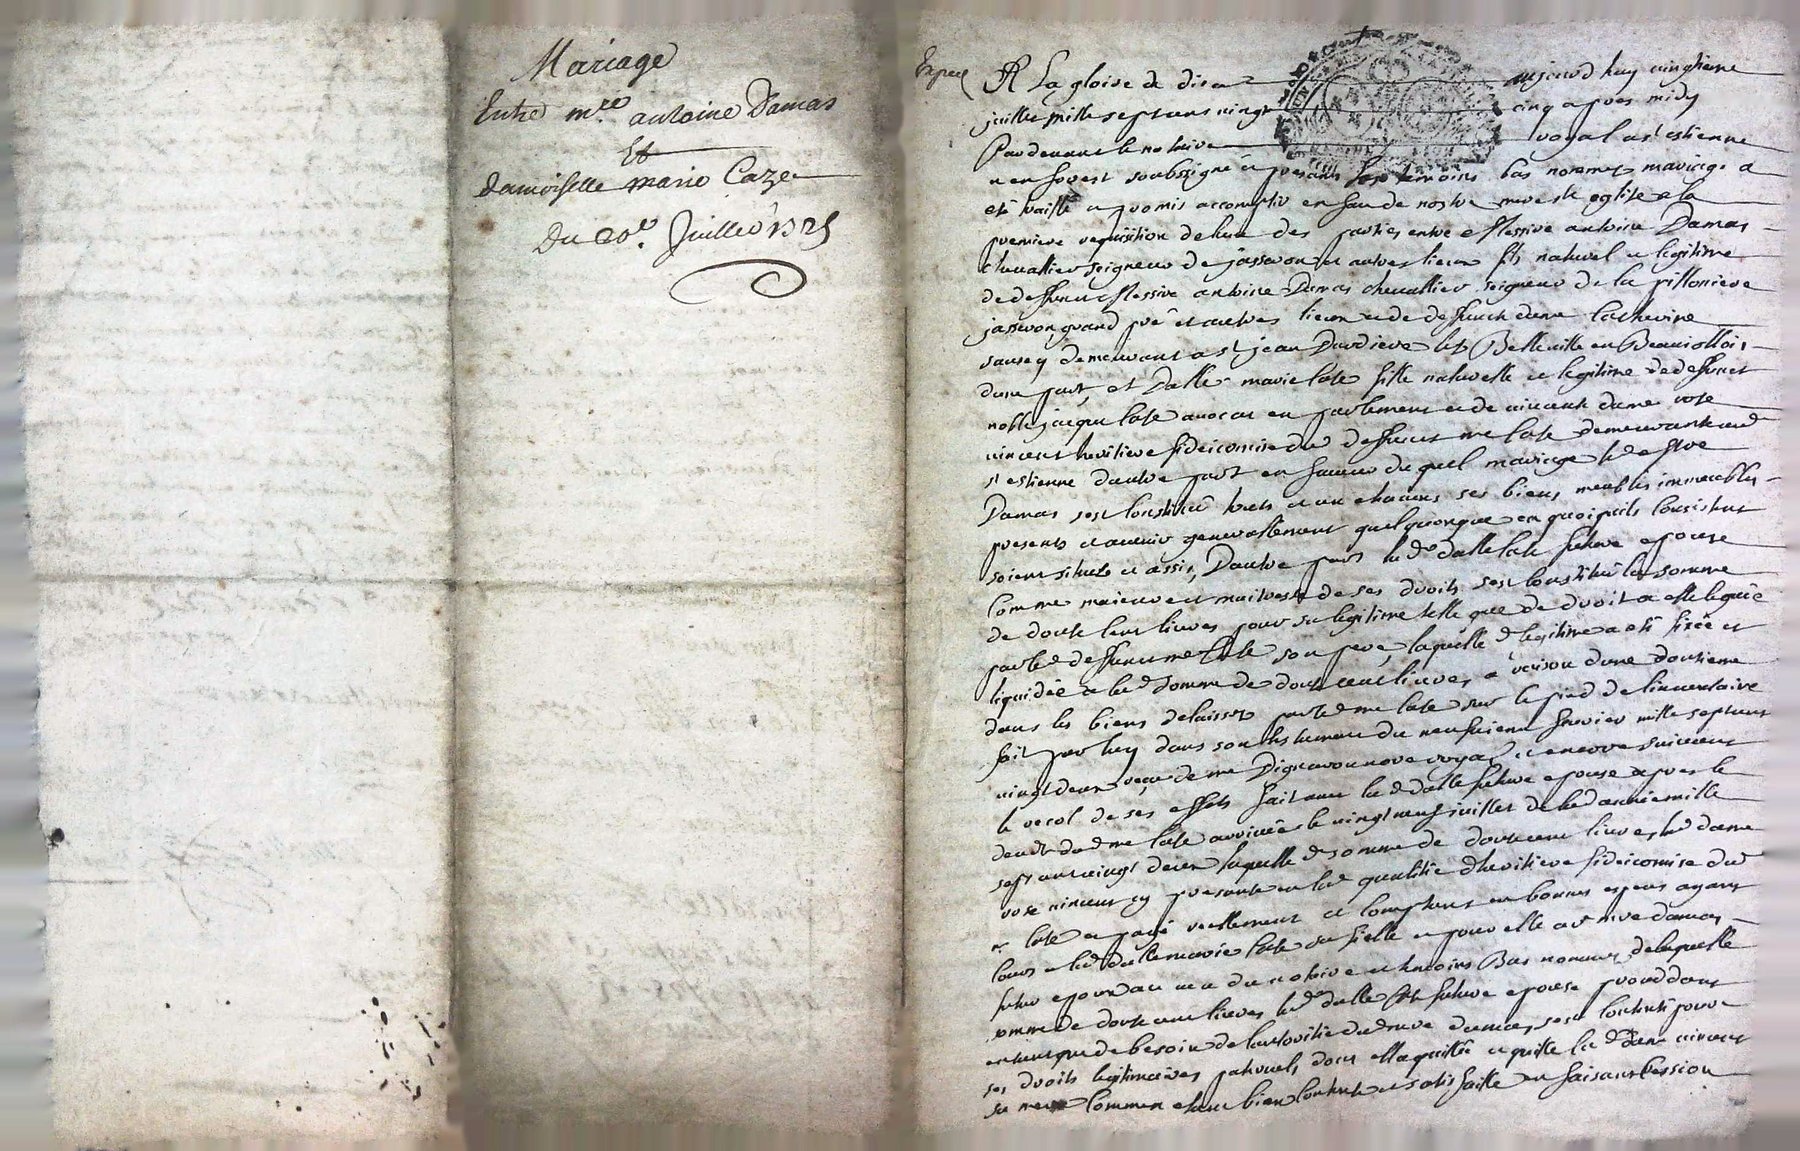 Mariage
Entre mre antoine Damas
Et
damoiselle marie Caze
Du 20e. Juillet 1725
A La gloire de dieu aujourd huy vingtieme
juillet mille sept cens vingt cinq apres midy
Pardevant le notaire royal a st estienne
en forest soubsigné et presants les temoins bas nommes mariage a
eté traitté et promis accomplir en face de nostre mere ste eglise a la
premiere requisition de lune des parties entre Messire antoine Damas
chevallier seigneur de jasseron et autres lieux fils naturel et legitime
de deffunct Messire antoine Damas chevallier seigneur de la pilloniere
jasseron grand pré et autres lieux et de deffuncte dame Catherine
demeurant a st jean Dardiere les Belleville en Beaujollois
dune part, et Dalle marie Caze fille naturelle et legitime de deffunct
noble jacque Caze avocat en parlement et de vivante dame roze
vincent heritiere fideicomise du d deffunct me Caze demeurante aud
st estienne dautre part en faveur du quel mariage led sr
Damas sest constitué tous et un chacuns ses biens meubles immeubles
presents et avenir generallement quelquonque en quoi quils consistent
soient situés et assis, Dautre part la d dalle Caze future epouse
comme majeure et maitresse de ses droits sest constitué la somme
de douze cent livres pour sa legitime telle que de droit a elle leguée
par led deffunct me Caze son pere, laquelle d legitime a eté fixée et
liquidée a lad somme de douze cent livres a raison dune douzieme
dans les biens delaissés par led me Caze sur le pied de linventaire
fait par luy dans son testament du neufvieme fevrier mille sept cens
vingt deux reçu de me royal, et encore suivant
le recol de ses effets fait avec la d dalle future epouse apres le
deceds dud me Caze arrivée le vingt neuf juillet de lad année mille
sept cens vingt deux laquelle d somme de douze cent livres lad dame
roze vincent cy presente en lad qualité dheritiere fideicomise dud
me Caze a payé reellement et comptant en bonnes especes ayant
cours a lad dalle marie Caze sa fille et pour elle aud sr damas
futur epoux au veu du notaire et temoins Bas nommes, de laquelle
somme de douze cent livres lad dalle Caze future epouse procedant
en tant que de besoin de lautorité dud sr damas, sest contenté pour
ses droits legitimaires paternels dont elle a quitté et quitte la d dame vincent
sa mere comme etant bien contente et satisfaitte en faisant cession